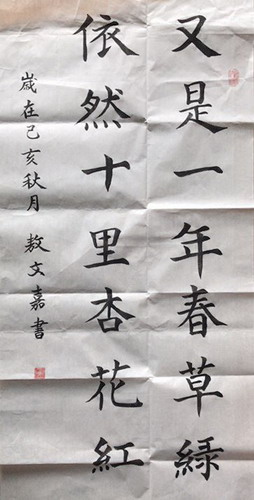 又是一年春草緑
依然十里杏花紅
歳在己亥秋月 敖文嘉書